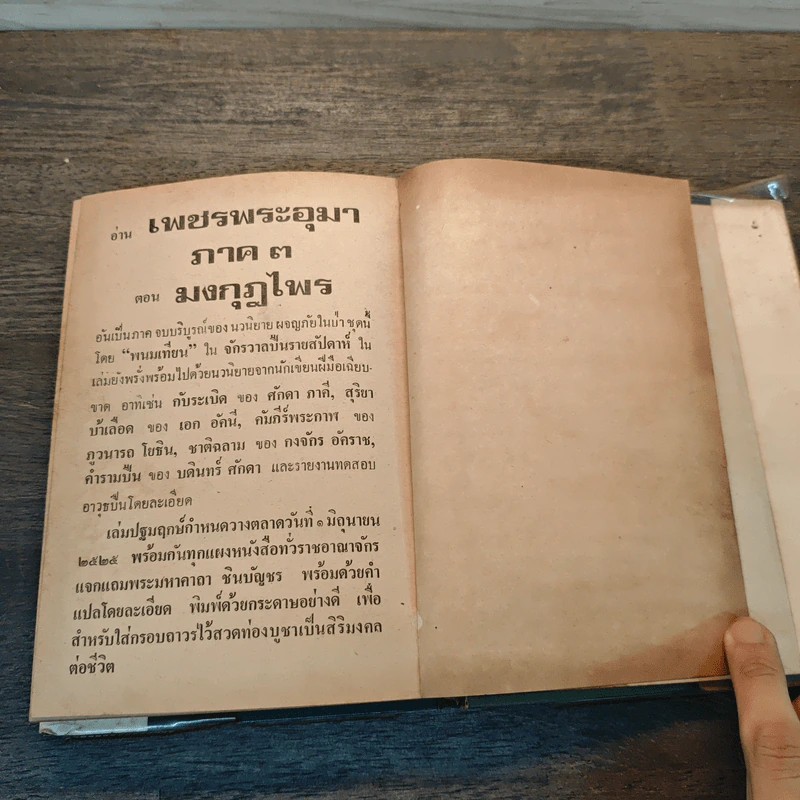 อ่าน เพชรพระอุมา
ภาค ๓
ตอน มงกุฎไพร
อันเป็นภาค จบบริบูรณ์ของ นวนิยาย ผจญภัยในป่า ชุดนี้
โดย “พนมเทียน” ใน จักรวาลปืนรายสัปดาห์ ใน
เล่มยังพรั่งพร้อมไปด้วยนวนิยายจากนักเขียนฝีมือเฉียบ-
ขาด อาทิเช่น กับระเบิด ของ ศักดา ภาคี, สุริยา
บ้าเลือด ของ เอก อัคนี, คัมภีร์พระกาฬ ของ
ภูวนารถ โยธิน, ชาติฉลาม ของ กงจักร อัคราช,
คำรามปืน ของ บดินทร์ ศักดา และรายงานทดสอบ
อาวุธปืนโดยละเอียด
เล่มปฐมฤกษ์กำหนดวางตลาดวันที่ ๑ มิถุนายน
๒๕๒๕ พร้อมกันทุกแผงหนังสือทั่วราชอาณาจักร
แจกแถมพระมหาคาถา ชินบัญชร พร้อมด้วยคำ
แปลโดยละเอียด พิมพ์ด้วยกระดาษอย่างดี เพื่อ
สำหรับใส่กรอบถาวรไว้สวดท่องบูชาเป็นสิริมงคล
ต่อชีวิต